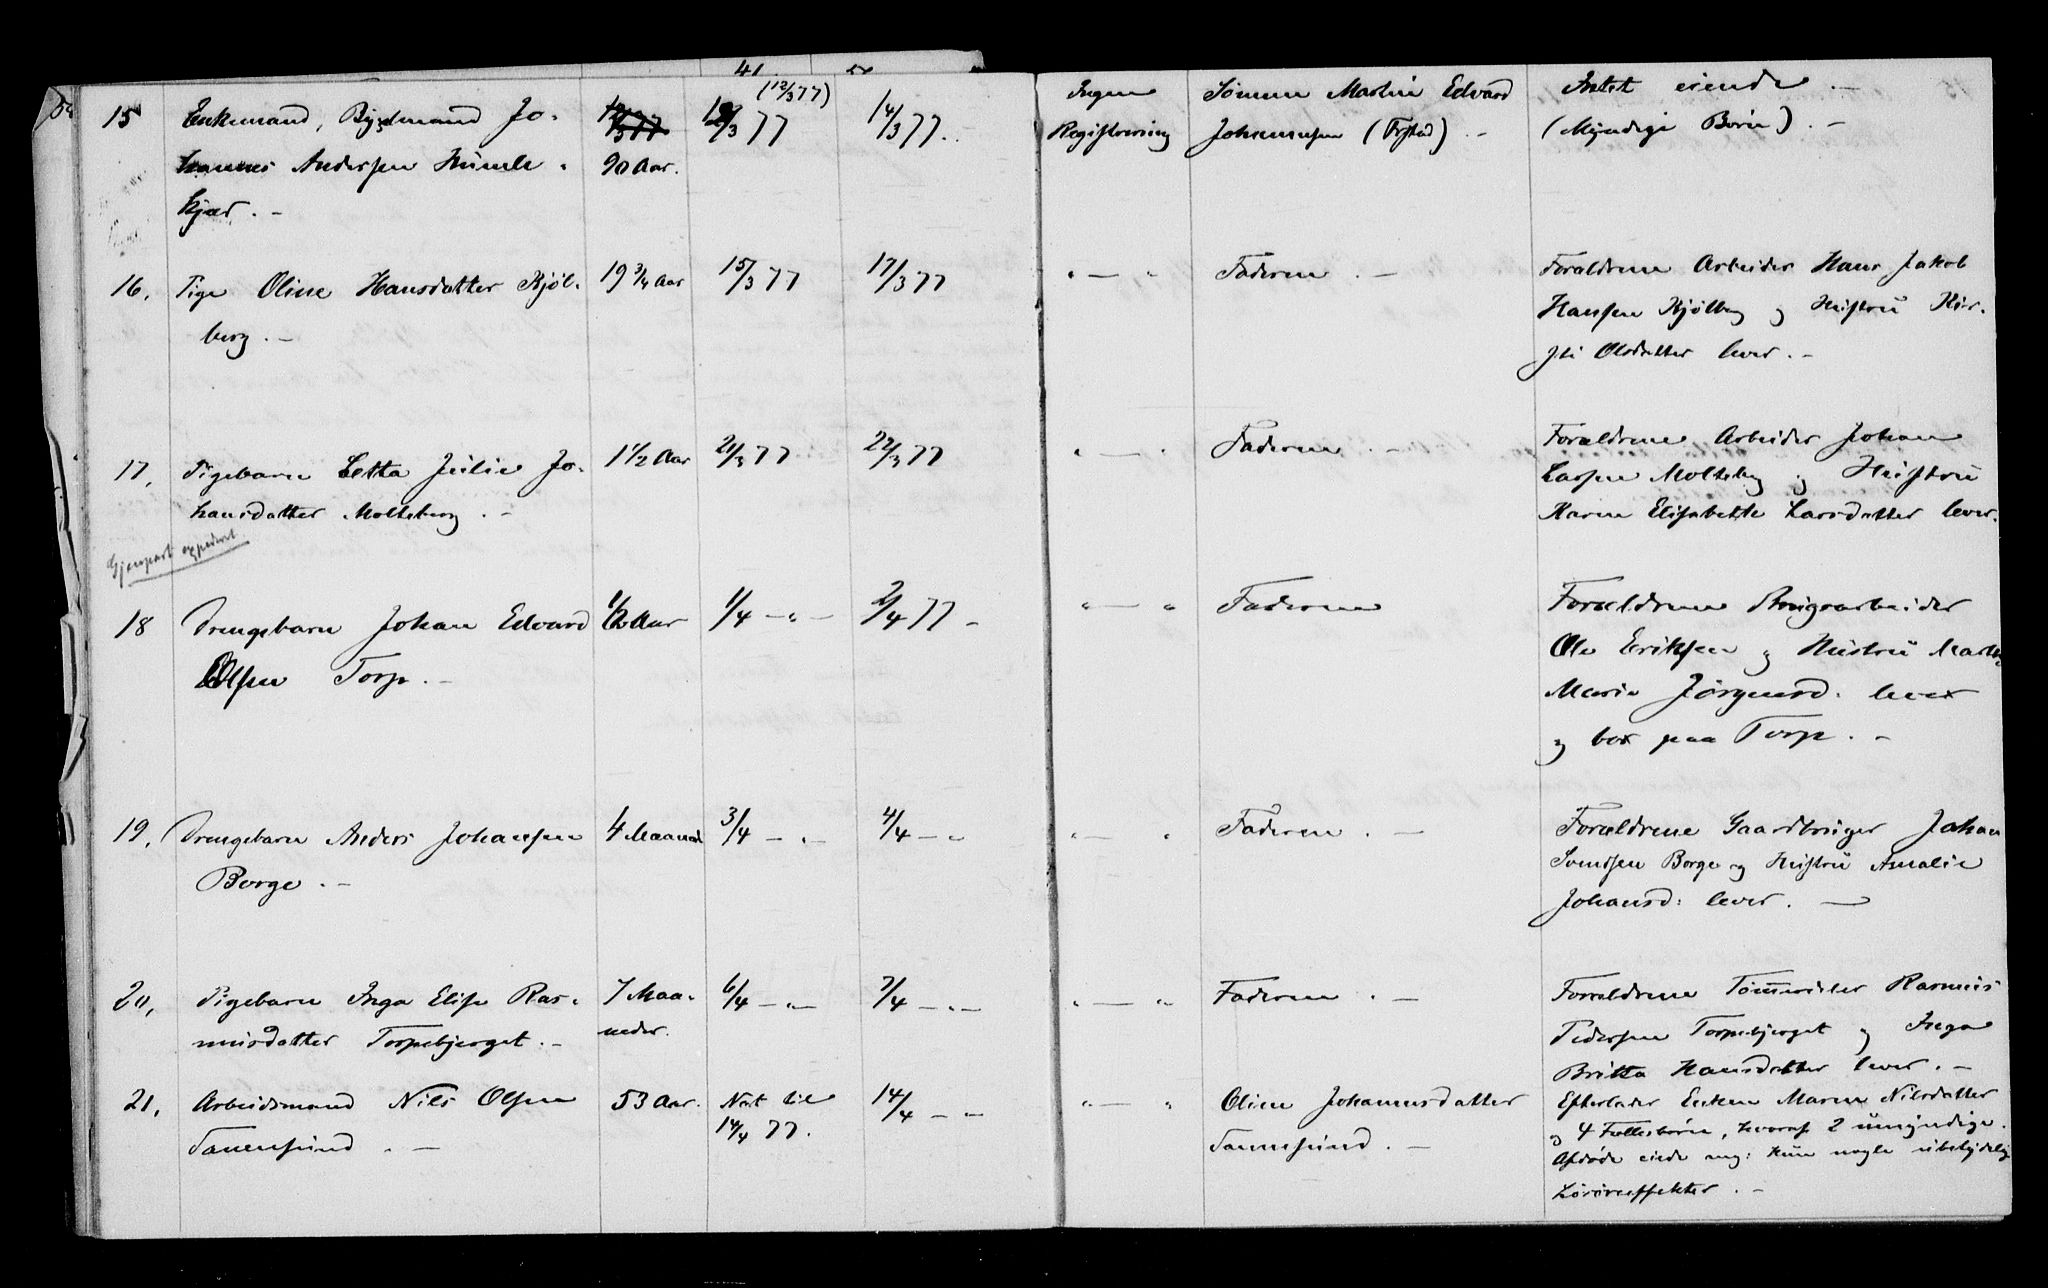 15 Enkemand, Bygdmand Jo-
hannes Andersen Humle-
kjær. -
90 Aar.
(12/3 77)
12/3 77
14/3 77.
Ingen
Registrering
Sønnen Martin Edvard
Johannesen
Intet eiende -
(Myndige Børn). -
16. Pige Oline Hansdatter Kjøl-
berg. -
19 3/4 Aar
15/3 77
17/3 77
" — "
Faderen. -
Forældrene Arbeider Hans Jakob
Hansen Kjølberg og Hustru Kir-
sti Olsdatter lever. -
17. Pigebarn Letta Julie Jo-
hansdatter Molteberg. -
1 1/2 Aar
21/3 77
22/3 77
" — "
Faderen. -
Forældrene Arbeider Johan
Larsen Molteberg og Hustru
Karen Elisabeth Larsdatter lever.
Gjenpart expederet.
18 Drengebarn Johan Edvard
Olsen Torp. -
1/2 Aar
1/4 - " -
2/4 77 -
" — "
Faderen
Forældrene Brugsarbeider
Ole Eriksen og Hustru Marthe
Marie Jörgensd: lever
og bor paa Torp. -
19. Drengebarn Anders Johansen
Borge. -
4 Maaned
3/4 - " -
4/4 - "
" — "
Faderen. -
Forældrene Gaardbruger Johan
Svendsen Borge og Hustru Amalie
Johansd: lever. —
20. Pigebarn Inga Elise Ras-
musdatter Torpebjerget. -
7 Maa-
neder.
6/4 - " -
7/4 - " -
" — "
Faderen. -
Forældrene Tømmermand Rasmus
Pedersen Torpebjerget og Inga
Britta Hansdatter lever. -
21. Arbeidsmand Nils Olsen
Tanumsund. -
53 Aar.
Nat til
14/4 77.
14/4 - "
" — "
Oline Johannesdatter
Tanumsund. -
Efterlader Enken Maren Nilsdatter
og 4 Fællesbørn, hvoraf 2 umyndige.
Afdøde eiede kun nogle ubetydelig
Løsøreeffekter. -